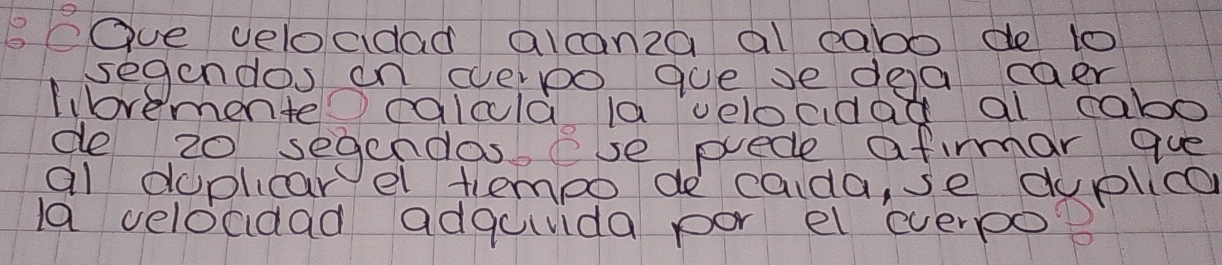 ¿Que velocidad alcanza al cabo de 10
segundos un cuerpo que se deja caer
libremente? calcula la velocidad al cabo
de 20 segundos. ¿se puede afirmar que
al duplicar el tiempo de caida, se duplica
la velocidad adquirida por el cuerpo?